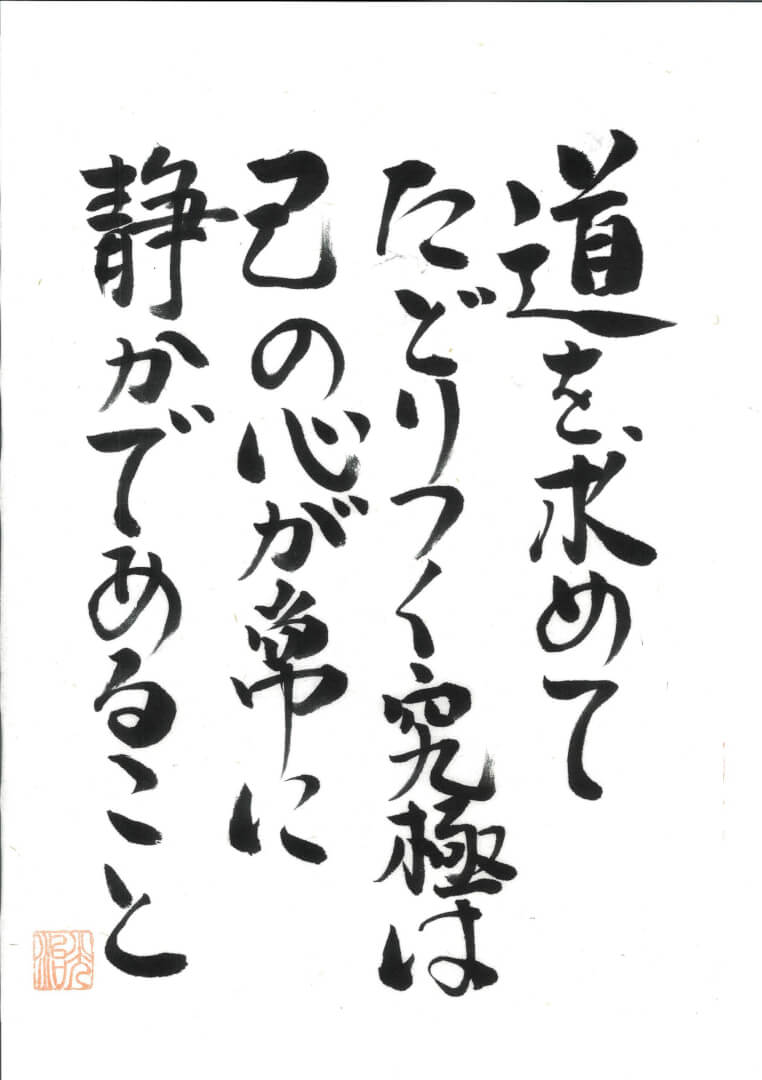 道を求めて
たどりつく究極は
己の心が常に
静かであること